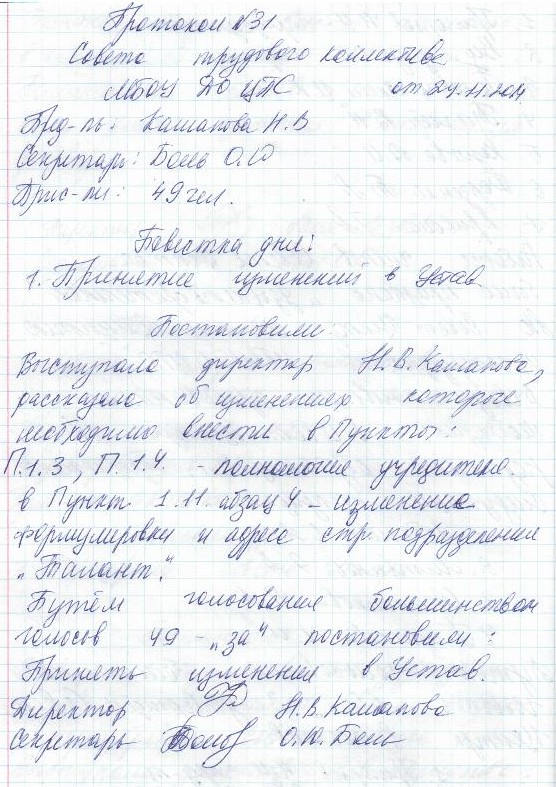 Протокол №31
Совета трудового коллектива
МБОУ ДО ЦПС от 24.11.2014
Пред-ль: Кашапова Н.В
Секретарь: Боль О.Ю
Прис-ли: 49 чел.
Повестка дня:
1. Принятие изменений в Устав
Постановили:
Выступала директор Н.В. Кашапова,
рассказала об изменениях которые
необходимо внести в Пункты:
П.1.3, П.1.4. - полномочия учредителя.
в Пункт 1.11. абзац 4 – изменение
формулировки и адреса стр. подразделения
„Талант".
Путём голосования большинством
голосов 49 - „за" постановили:
Принять изменения в Устав.
Директор Н.В. Кашапова
Секретарь О.Ю. Боль